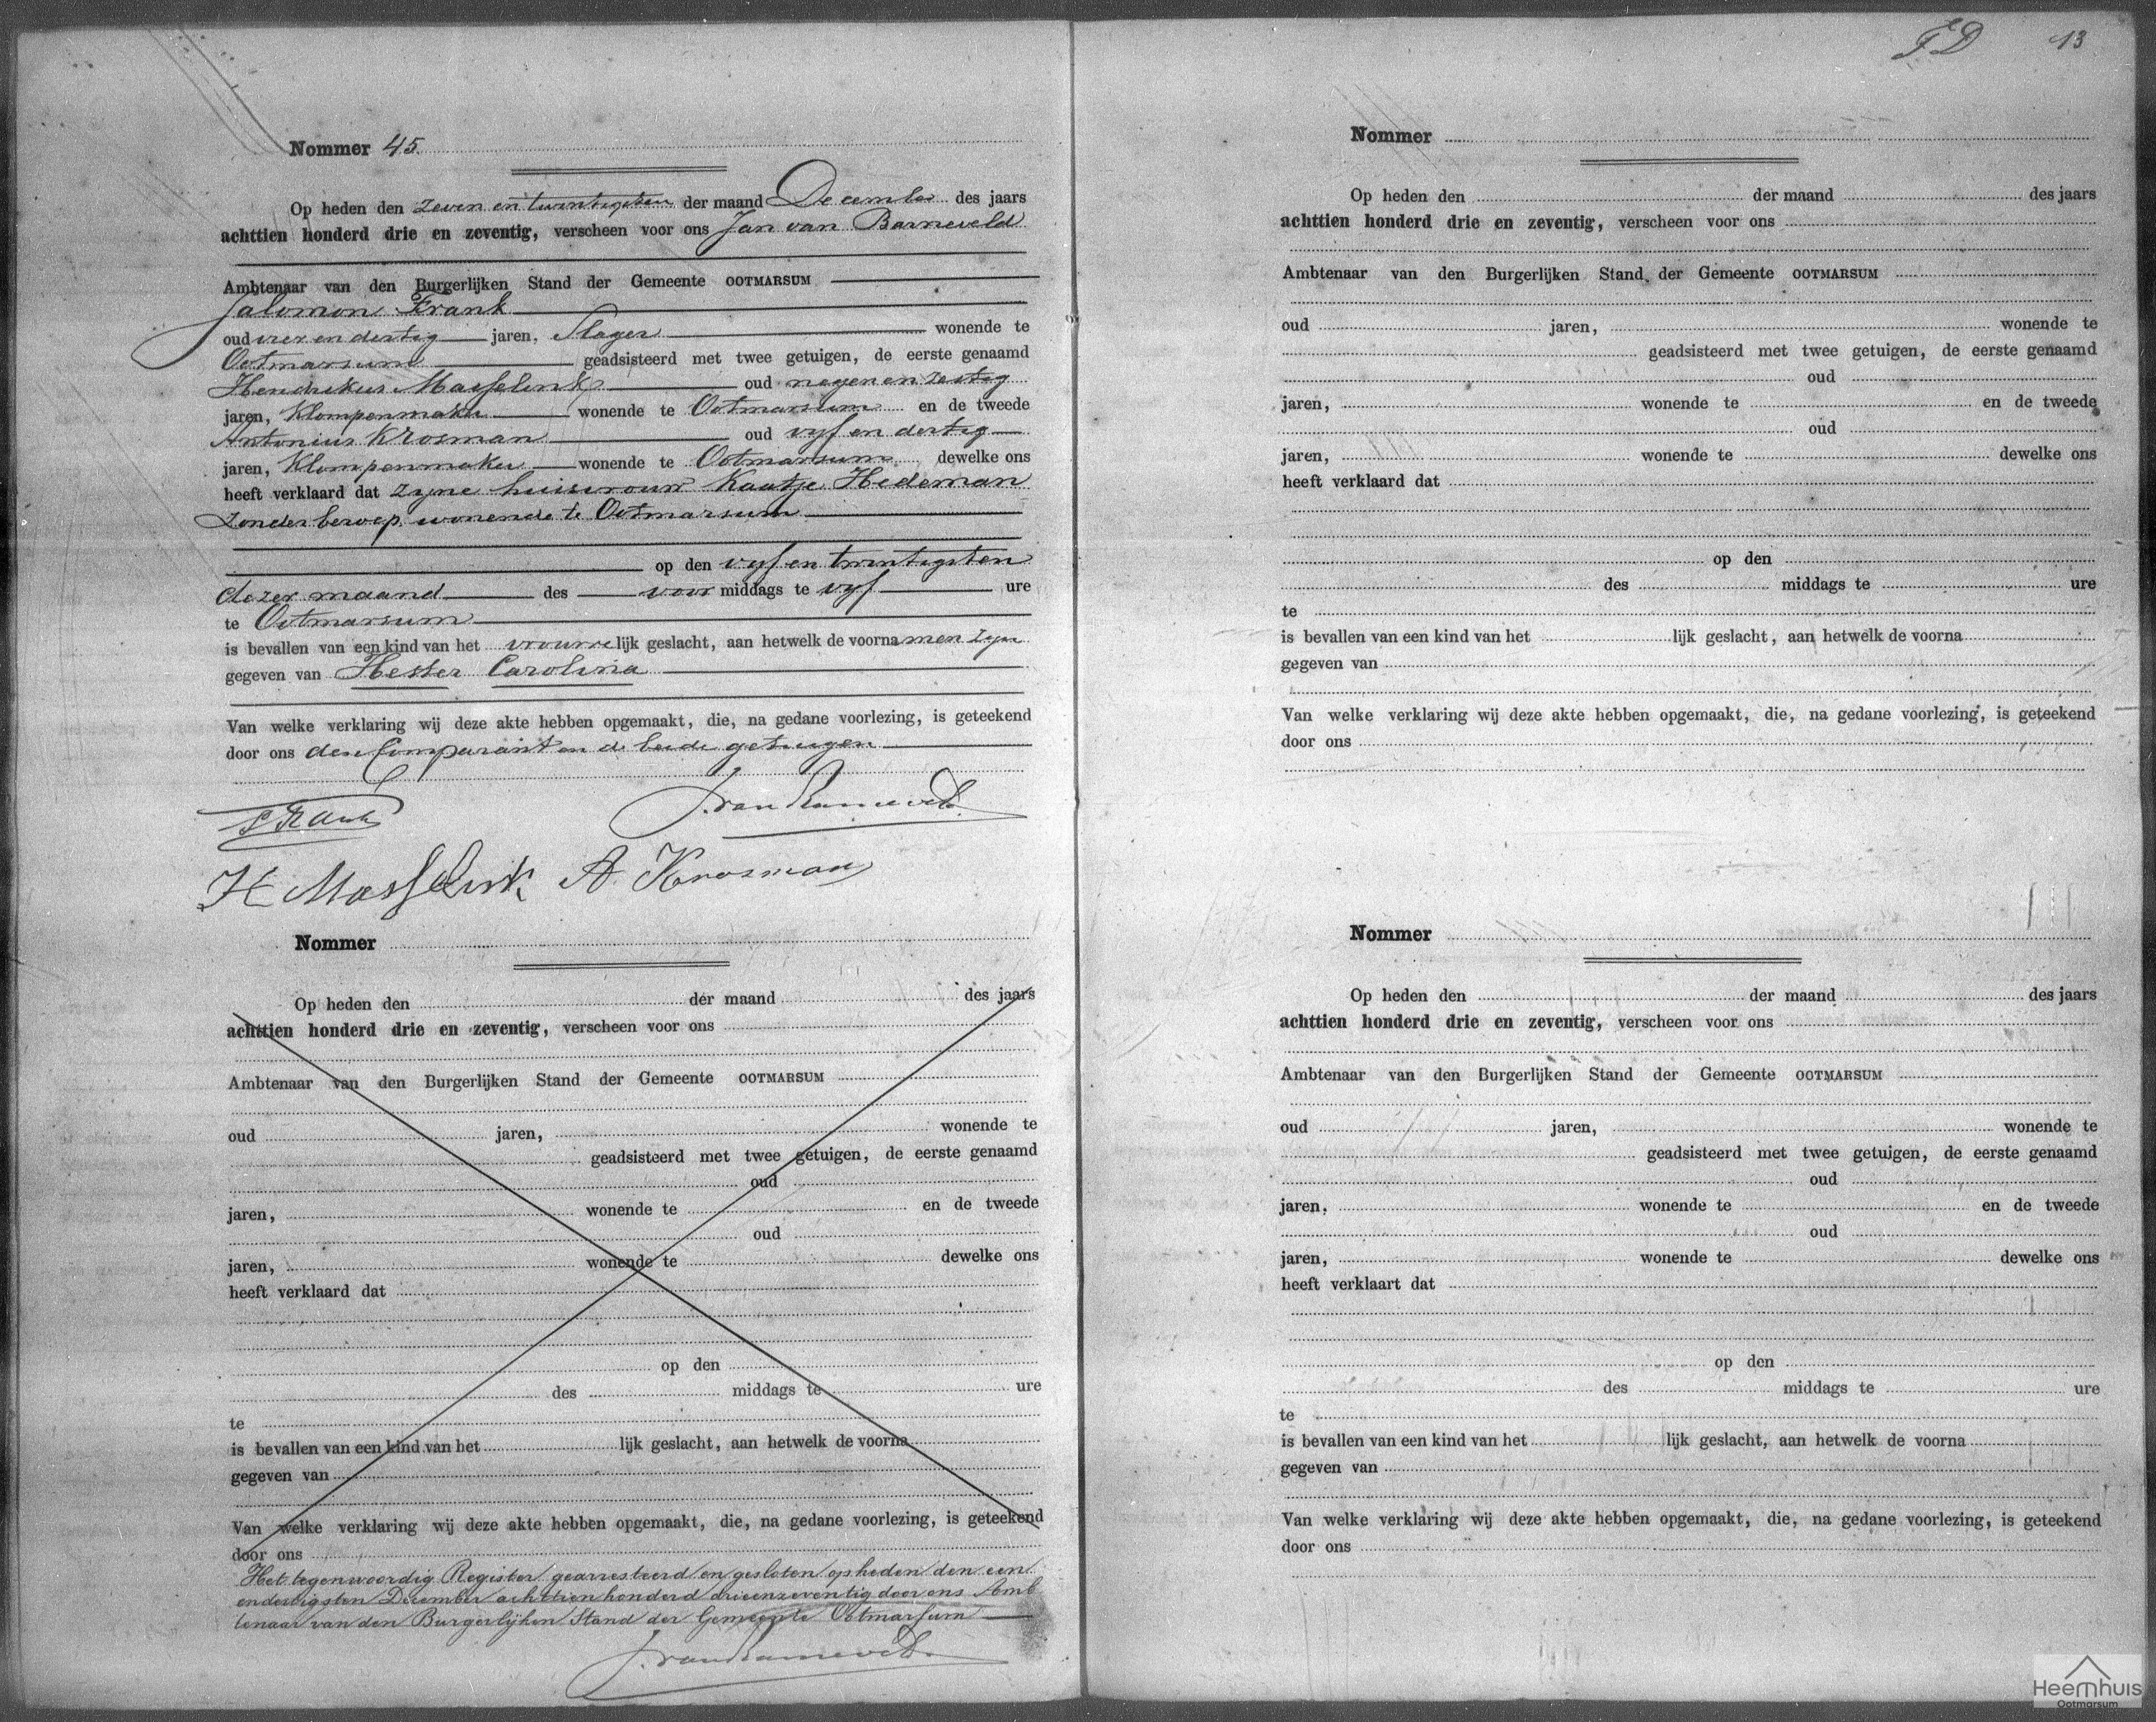 Nommer 45.
Op heden den zeven en twintigsten der maand December des jaars
achttien honderd drie en zeventig, verscheen voor ons Jan van Barneveld
Ambtenaar van den Burgerlijken Stand der Gemeente OOTMARSUM
Salomon Frank
oud vier en dertig jaren, Slager wonende te
Ootmarsum geadsisteerd met twee getuigen, de eerste genaamd
Hendrikus Masselink oud negen en zestig
jaren, Klompenmaker wonende te Ootmarsum en de tweede
Antonius Krosman oud vyf en dertig
jaren, Klompenmaker wonende te Ootmarsum dewelke ons
heeft verklaard dat zyne huisvrouw Kaatje Hedeman
zonder beroep wonende te Ootmarsum
op den vyf en twintigsten
dezer maand des voor middags te vyf ure
te Ootmarsum
is bevallen van een kind van het vrouwelijk geslacht, aan hetwelk de voornamen zyn
gegeven van Hester Carolina
Van welke verklaring wij deze akte hebben opgemaakt, die, na gedane voorlezing, is geteekend
door ons den Comparant en de beide getuigen
S Frank J. van Barneveld
H Masselink A. Krosman
Nommer
Op heden den der maand des jaars
achttien honderd drie en zeventig, verscheen voor ons
Ambtenaar van den Burgerlijken Stand der Gemeente OOTMARSUM
oud jaren, wonende te
geadsisteerd met twee getuigen, de eerste genaamd
oud
jaren, wonende te en de tweede
oud
jaren, wonende te dewelke ons
heeft verklaard dat
op den
des middags te ure
te
is bevallen van een kind van het lijk geslacht, aan hetwelk de voorna
gegeven van
Van welke verklaring wij deze akte hebben opgemaakt, die, na gedane voorlezing, is geteekend
door ons
Het tegenwoordig Register gearresteerd en gesloten op heden den een
en dertigsten December achttien honderd drie en zeventig door ons Amb
tenaar van den Burgerlijken Stand der Gemeente Ootmarsum
J. van Barneveld
13
Nommer
Op heden den der maand des jaars
achttien honderd drie en zeventig, verscheen voor ons
Ambtenaar van den Burgerlijken Stand der Gemeente OOTMARSUM
oud jaren, wonende te
geadsisteerd met twee getuigen, de eerste genaamd
oud
jaren, wonende te en de tweede
oud
jaren, wonende te dewelke ons
heeft verklaard dat
op den
des middags te ure
te
is bevallen van een kind van het lijk geslacht, aan hetwelk de voorna
gegeven van
Van welke verklaring wij deze akte hebben opgemaakt, die, na gedane voorlezing, is geteekend
door ons
Nommer
Op heden den der maand des jaars
achttien honderd drie en zeventig, verscheen voor ons
Ambtenaar van den Burgerlijken Stand der Gemeente OOTMARSUM
oud jaren, wonende te
geadsisteerd met twee getuigen, de eerste genaamd
oud
jaren, wonende te en de tweede
oud
jaren, wonende te dewelke ons
heeft verklaart dat
op den
des middags te ure
te
is bevallen van een kind van het lijk geslacht, aan hetwelk de voorna
gegeven van
Van welke verklaring wij deze akte hebben opgemaakt, die, na gedane voorlezing, is geteekend
door ons
Heemhuis
Ootmarsum